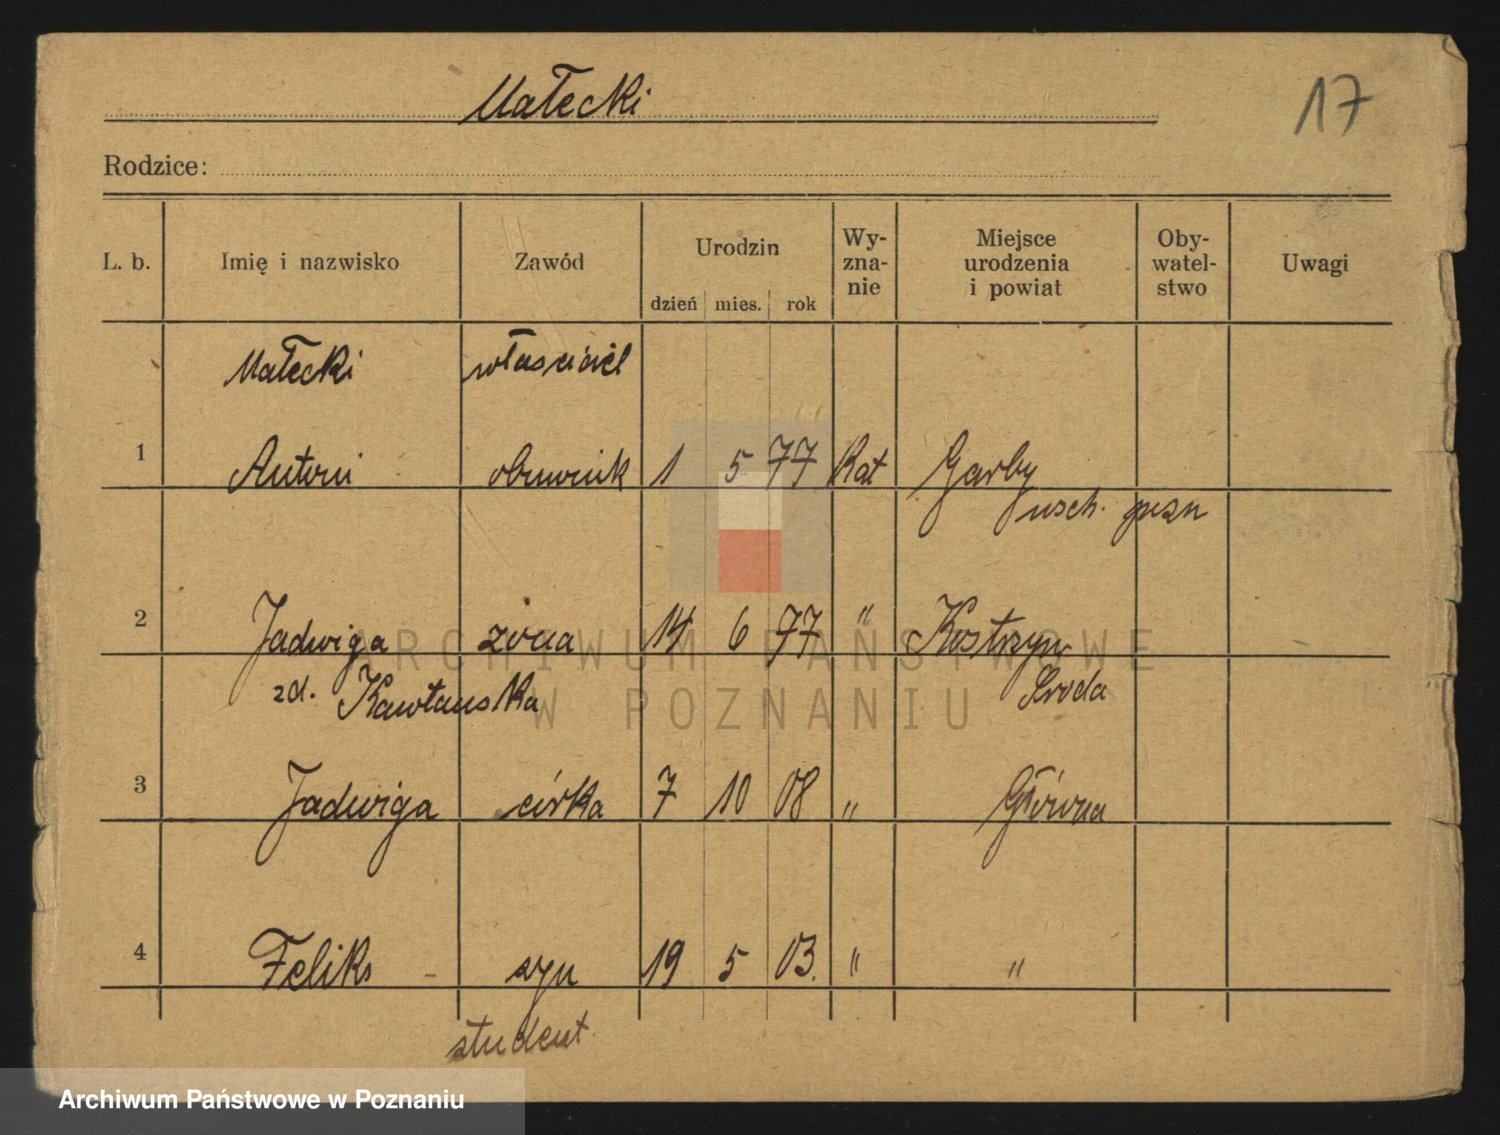 Małecki
17
Rodzice:
L. b. Imię i nazwisko Zawód Urodzin dzień mies. rok Wy-zna-nie Miejsce urodzenia i powiat Oby-watel-stwo Uwagi
Małecki właściciel
1 Antoni obuwnik 1 5 77 Kat Garby
2 Jadwiga żona 14 6 77 " Kostrzyn
zd. Kawłańska Środa
3 Jadwiga córka 7 10 08 " Główna
4 Feliks syn 19 5 03. " "
student
ARCHIWUM PAŃSTWOWE
W POZNANIU
Archiwum Państwowe w Poznaniu